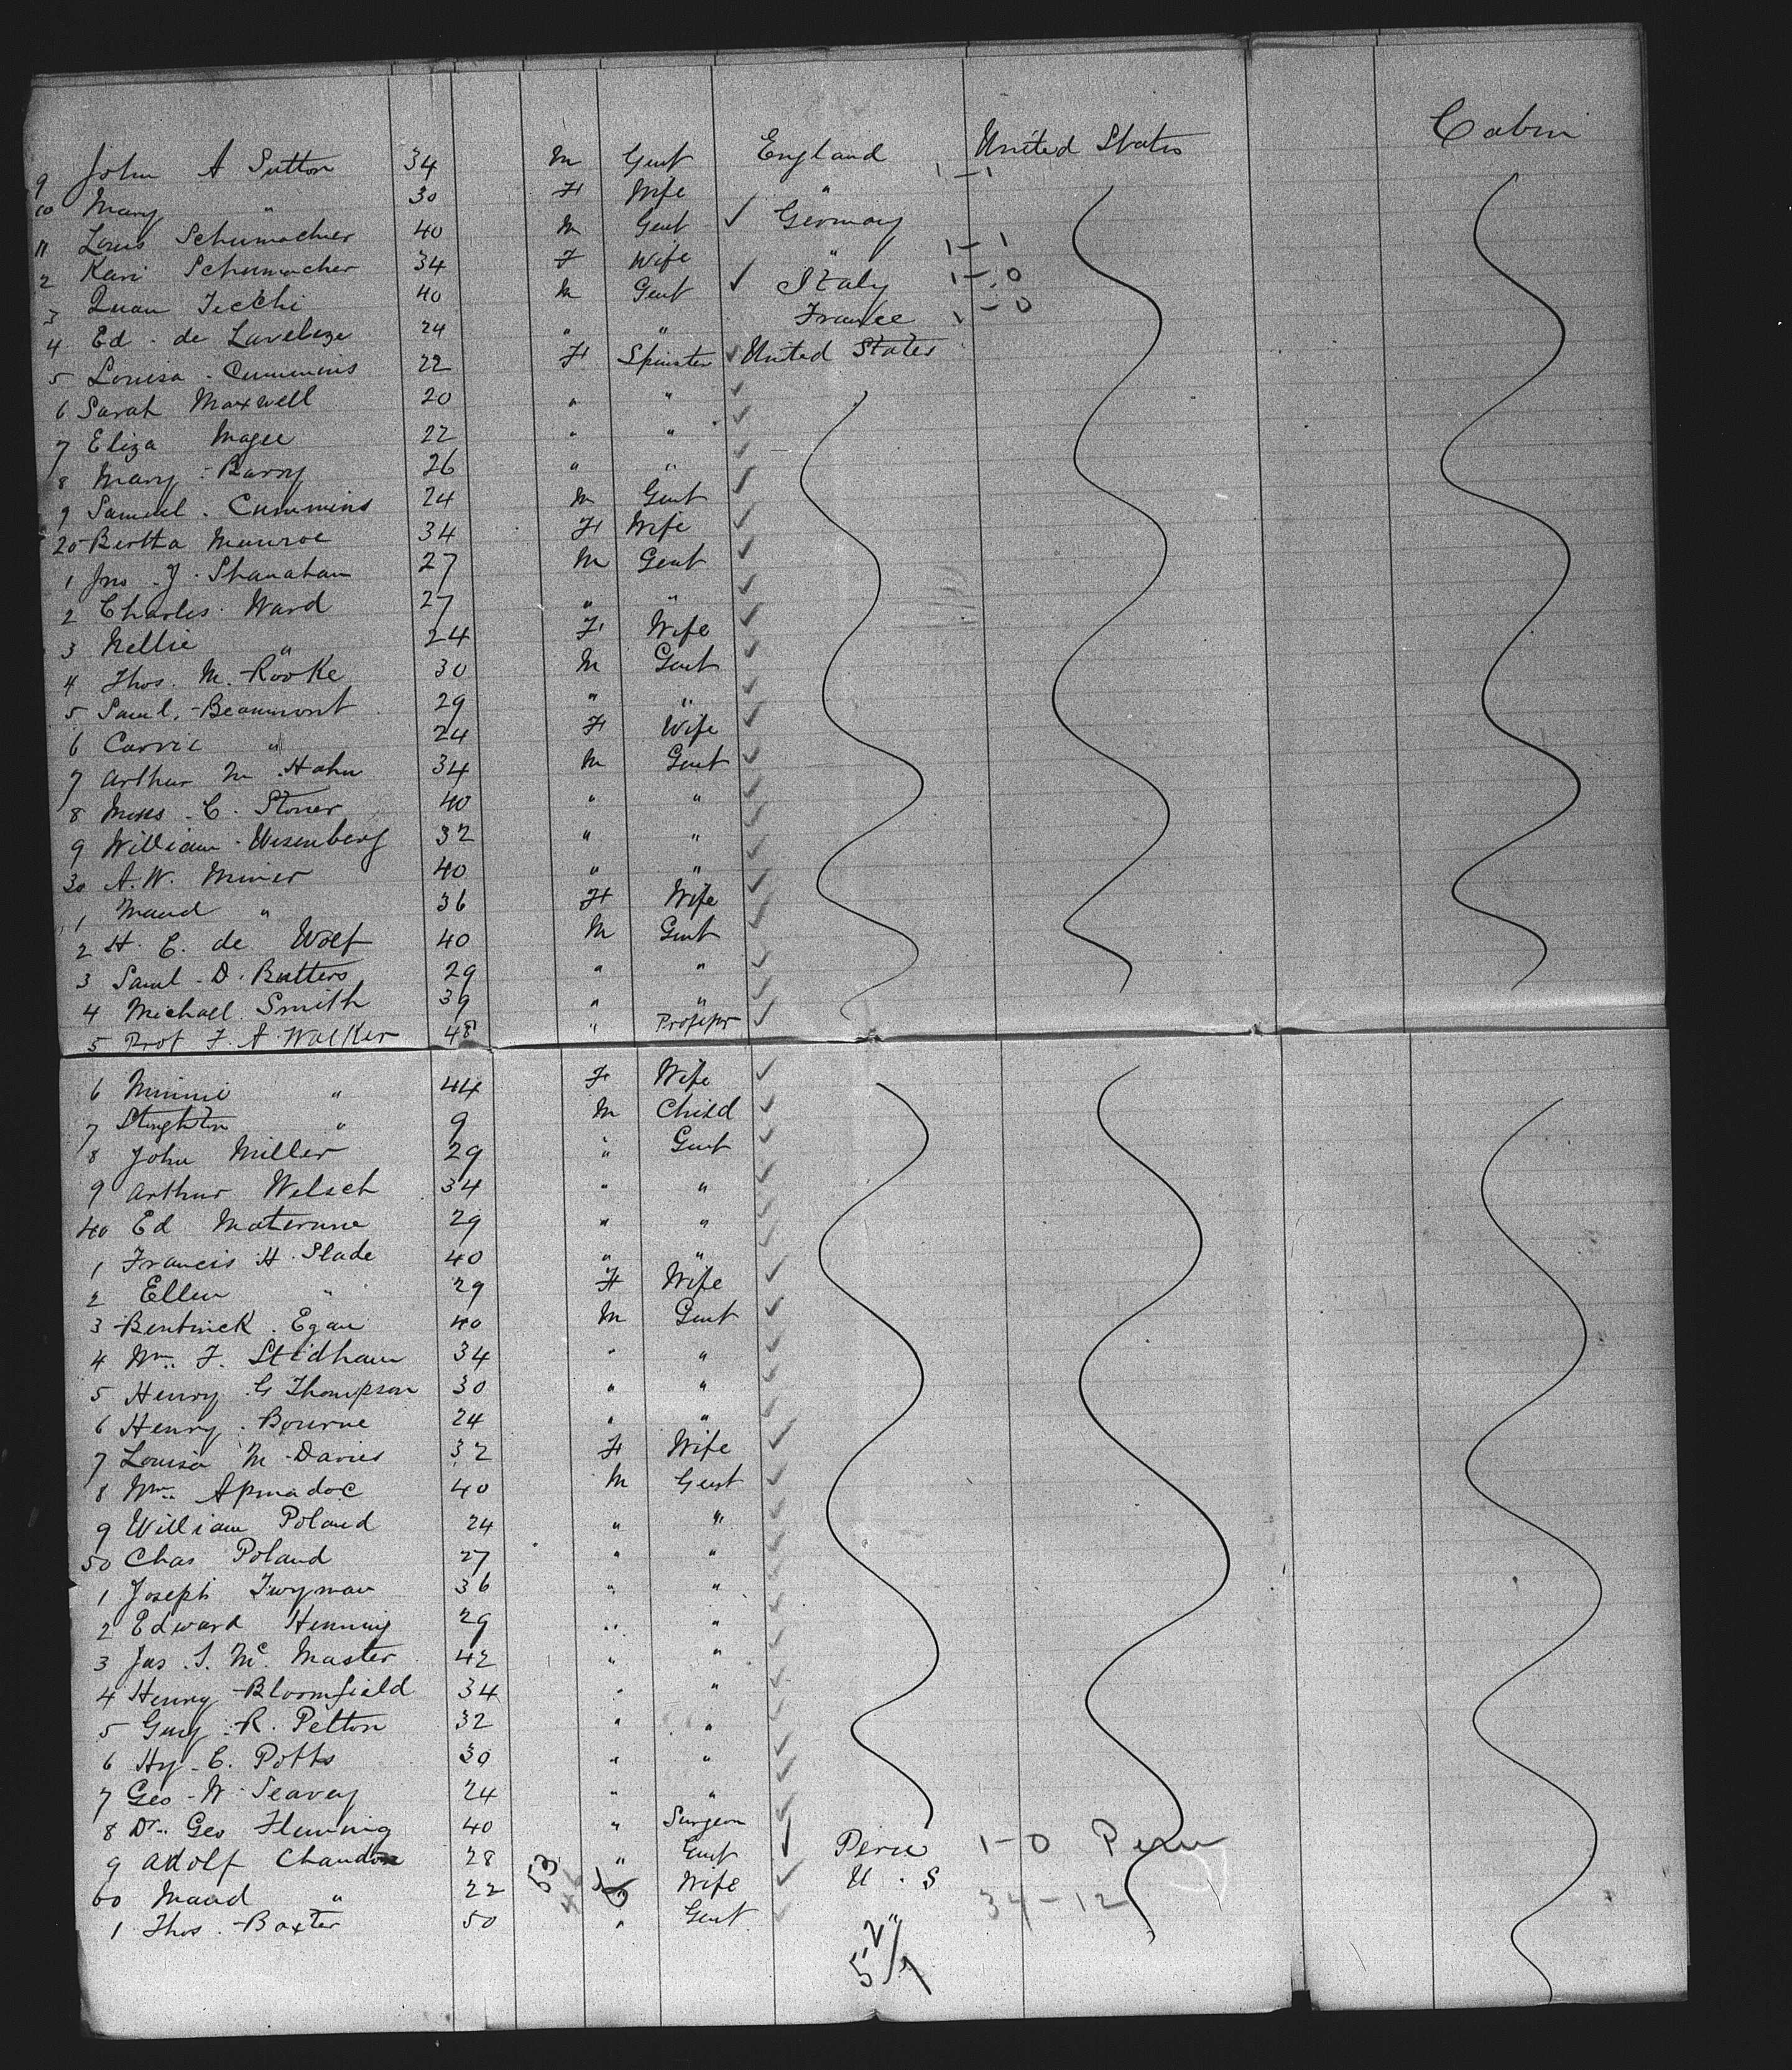 Cabin
9 John A Sutton 34 M Gent England United States
10 Mary " 30 F Wife "
11 Louis Schumacher 40 M Gent ✓ Germany 1-1
2 Kari Schumacher 34 F Wife "
3 Quan Tecchi 40 M Gent ✓ Italy 1-0
4 Ed. de Laveleze 24 " " France 1-0
5 Louisa Cummins 22 F Spinster ✓ United States
6 Sarah Maxwell 20 " " ✓
7 Eliza Magee 22 " " ✓
8 Mary Barry 26 " " ✓
9 Samuel Cummins 24 M Gent ✓
20 Bertta Munroe 34 F Wife ✓
1 Jno J. Shanahan 27 M Gent ✓
2 Charles Ward 27 " " ✓
3 Nellie " 24 F Wife ✓
4 Thos. M. Rooke 30 M Gent ✓
5 Saml. Beaumont 29 " " ✓
6 Carrie " 24 F Wife ✓
7 Arthur M Hahn 34 M Gent ✓
8 Moses C. Stoner 40 " " ✓
9 William Wisenberg 32 " " ✓
30 A. W. Miner 40 " " ✓
1 Maud " 36 F Wife ✓
2 H. E. de Wolf 40 M Gent ✓
3 Saml D. Butters 29 " " ✓
4 Michael Smith 39 " " ✓
5 Prof F. A Walker 48 " Profesr ✓
6 Minnie " 44 F Wife ✓
7 Stoughton " 9 M Child ✓
8 John Miller 29 " Gent ✓
9 Arthur Welsch 34 " " ✓
40 Ed Materune 29 " " ✓
1 Francis H. Slade 40 " " ✓
2 Ellen " 29 F Wife ✓
3 Bentinck Egan 40 M Gent ✓
4 Wm. F. Stidham 34 " " ✓
5 Henry G Thompson 30 " " ✓
6 Henry Bourne 24 " " ✓
7 Louisa M Davies 32 F Wife ✓
8 Wm. Apmadoc 40 M Gent ✓
9 William Poland 24 " " ✓
50 Chas Poland 27 " " ✓
1 Joseph Twyman 36 " " ✓
2 Edward Henning 29 " " ✓
3 Jas. S. Mc Master 42 " " ✓
4 Henry Bloomfield 34 " " ✓
5 Guy R. Pelton 32 " " ✓
6 Hy C. Potts 30 " " ✓
7 Geo W. Seavey 24 " " ✓
8 Dr. Geo Fleming 40 " Surgeon ✓
9 Adolf Chandon 28 53 " Gent ✓ Peru 1-0 Peru
60 Maud " 22 Wife ✓ U. S 34-12
1 Thos. Baxter 50 " Gent ✓ "